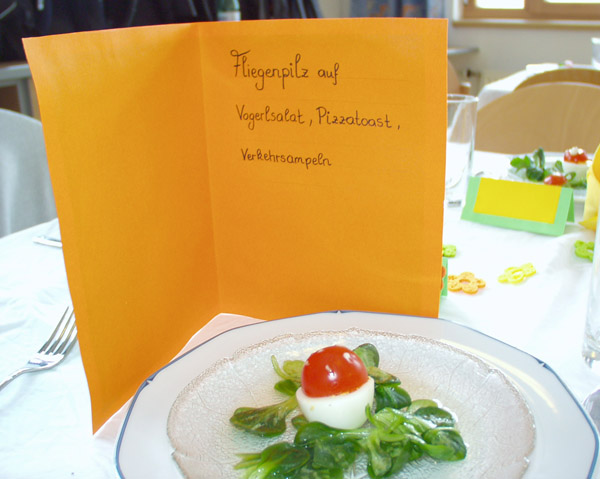 Fliegenpilz auf
Vogerlsalat, Pizzatoast,
Verkehrsampeln